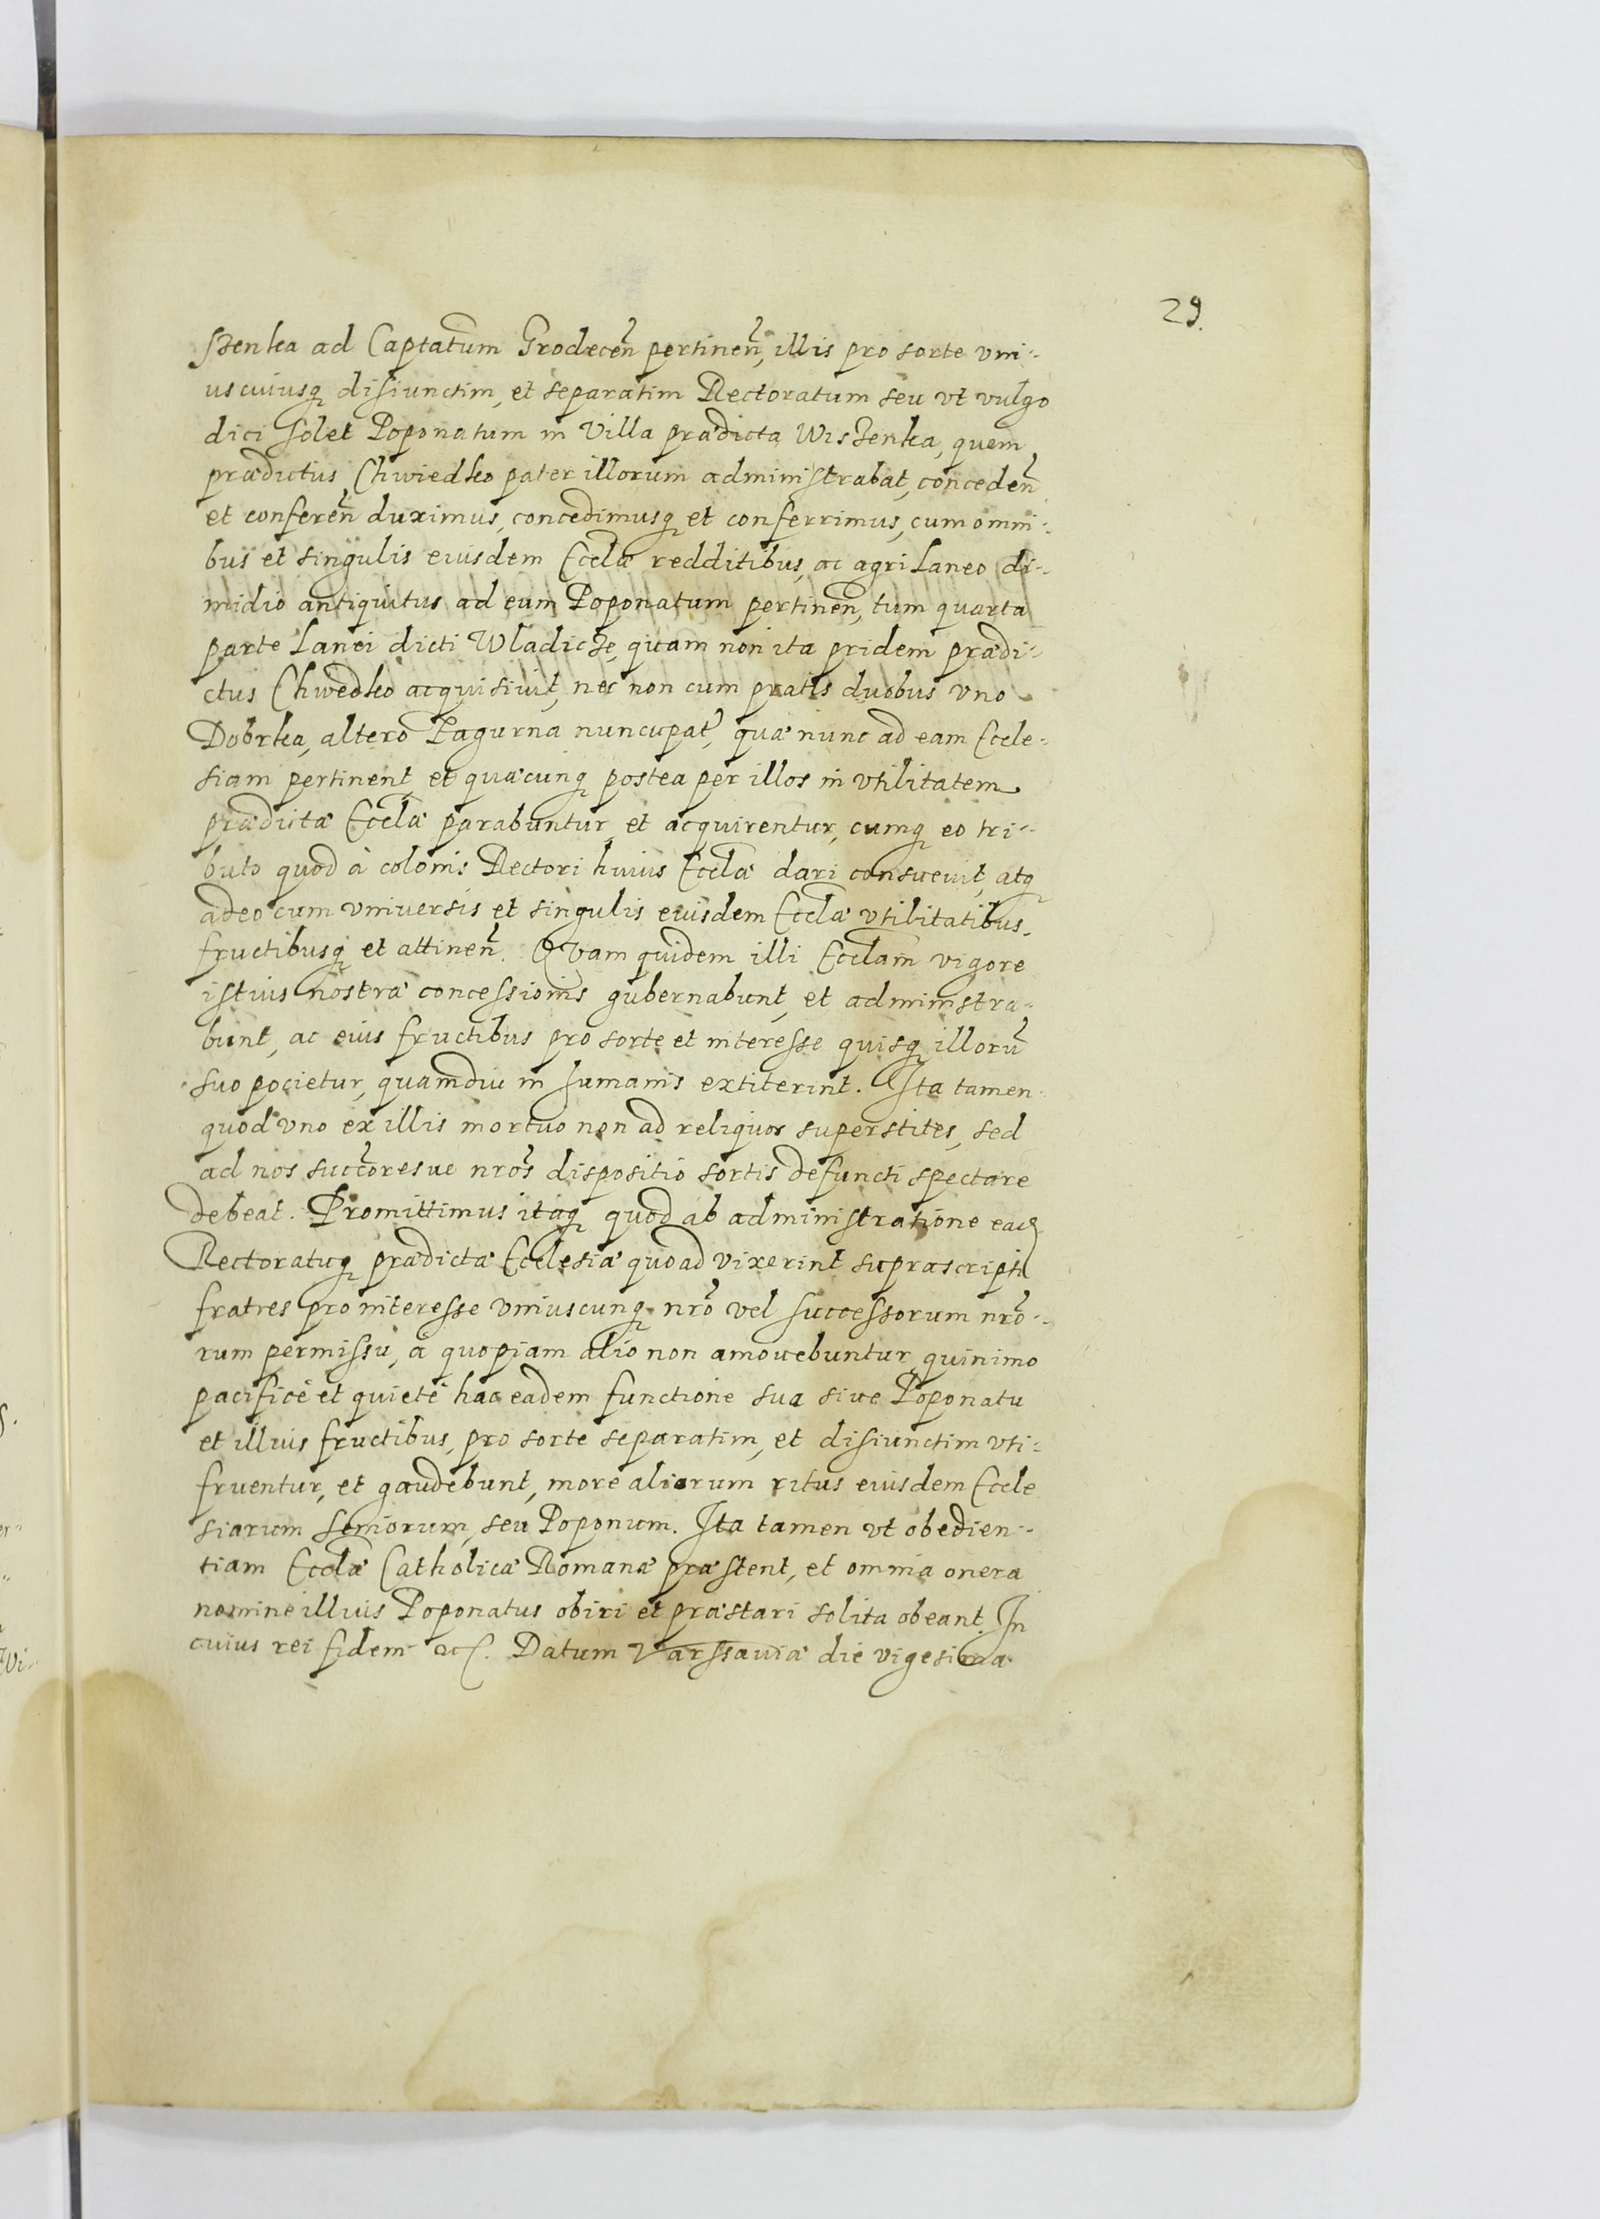 29.
szenka ad Captatum Grodecen̄ pertinen̄, illis pro sorte vni-
uscuiusq disiunctim, et separatim Rectoratum seu vt vulgo
dici solet Poponatum in Villa prædicta Wiszenka, quem
prædictus Chwiedko pater illorum administrabat, conceden̄
et conferen̄ duximus, concedimusq et conferrimus, cum omni-
bus et singulis eiusdem Ecclæ redditibus, ac agri Laneo di-
midio antiquitus ad eum Poponatum pertinen̄, tum quarta
parte Lanei dicti Wladicze, quam non ita pridem prædi-
ctus Chwedko acquisiuit, nec non cum pratis duobus vno
Dobrka, altero Zagurna nuncupat, quæ nunc ad eam Eccle-
siam pertinent, et quæcunq postea per illos in vtilitatem
prædictæ Ecclæ parabuntur et acquirentur, cumq eo tri-
buto quod à colonis Rectori huius Ecclæ dari consueuit, atq
adeo cum vniuersis et singulis eiusdem Ecclæ vtilitatibus,
fructibusq et attinen̄. Qvam quidem illi Ecclam vigore
istius nostræ concessionis gubernabunt, et administra-
bunt, ac eius fructibus pro sorte et interesse quisq illorū
suo pocietur, quamdiu in humanis extiterint. Ita tamen
quod vno ex illis mortuo non ad reliquos superstites, sed
ad nos succoresue nros dispositio sortis defuncti spectare
debeat. Promittimus itaq quod ab administratione
Rectoratuq prædictæ Ecclesiæ quoad vixerint suprascripti
fratres pro interesse vniuscunq nro vel successorum nro-
rum permissu, à quopiam alio non amouebuntur, quinimo
pacificè et quietè hac eadem functione sua siue Poponatu
et illius fructibus, pro sorte separatim, et disiunctim vti-
fruentur, et gaudebunt, more aliorum ritus eiusdem Eccle
siarum Seniorum, seu Poponum. Ita tamen vt obedien-
tiam Ecclæ Catholicæ Romanæ præstent, et omnia onera
nomine illius Poponatus obiri et præstari solita obeant. In
cuius rei fidem etc. Datum Varssauiæ die vigesima